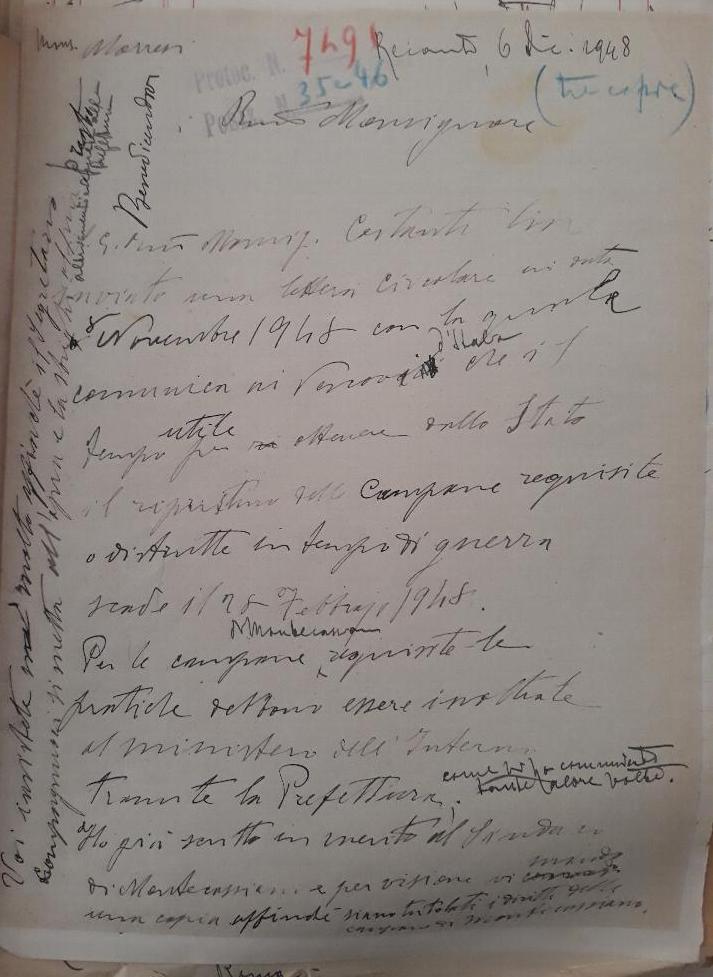 Mons. Moresi
Protoc. N. 7491
Recanati, 6 Dic. 1948
35-46
(tre copie)
Monsignore
Benedicendovi
S. E. Mons. Costantini
inviato una lettera circolare in data
Novembre 1948 con la quale
d'Italia
comunica ai Vescovi che il
utile
tempo per ottenere dallo Stato
il ripristino delle Campane requisite
o distrutte in tempo di guerra
scade il 28 Febbraio 1948.
di Montecassiano
Per le campane requisite le
pratiche debbono essere inoltrate
al ministero dell'Interno
come vi ho comunicato
tramite la Prefettura, altre volte.
Ho già scritto in merito al Sindaco
di Montecassiano e per visione vi mando
una copia affinché siano tutelati i diritti delle
campane di Montecassiano.
Voi insistete molto affinché il Segretario
Comunale si metta all'opera e la
Roma